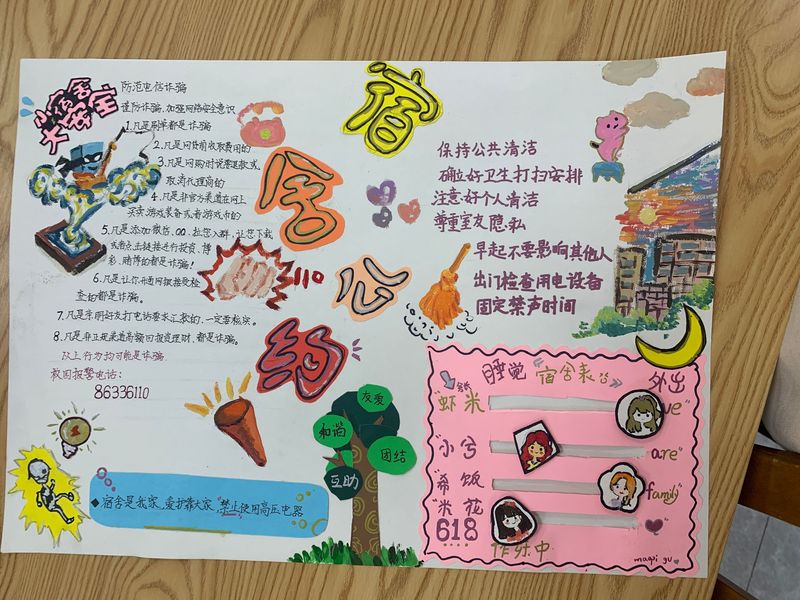 小宿舍
大安全
防范电信诈骗
谨防诈骗，加强网络安全意识
1.凡是刷单都是诈骗
2.凡是网贷前收取费用的
3.凡是网购时说要退款或
取消代理商的
4.凡是非官方渠道在网上
买卖游戏装备或者游戏币的
5.凡是添加微信、QQ，拉您入群，让您下载
或者点击链接进行投资、博
彩、赌博的都是诈骗！
6.凡是让你开通网银接受检
查的都是诈骗。
7.凡是亲朋好友打电话要求汇款的，一定要核实。
8.凡是非正规渠道高额回报投资理财，都是诈骗。
以上行为均可能是诈骗
校园报警电话：
86336110
110
宿
舍
公
约
保持公共清洁
确立好卫生打扫安排
注意好个人清洁
尊重室友隐私
早起不要影响其他人
出门检查用电设备
固定禁声时间
友爱
和谐
团结
互助
宿舍是我家，爱护靠大家，禁止使用高压电器
睡觉
宿舍表
外出
虾米
we
小兮
are
希饭
family
米花
618
作妖中